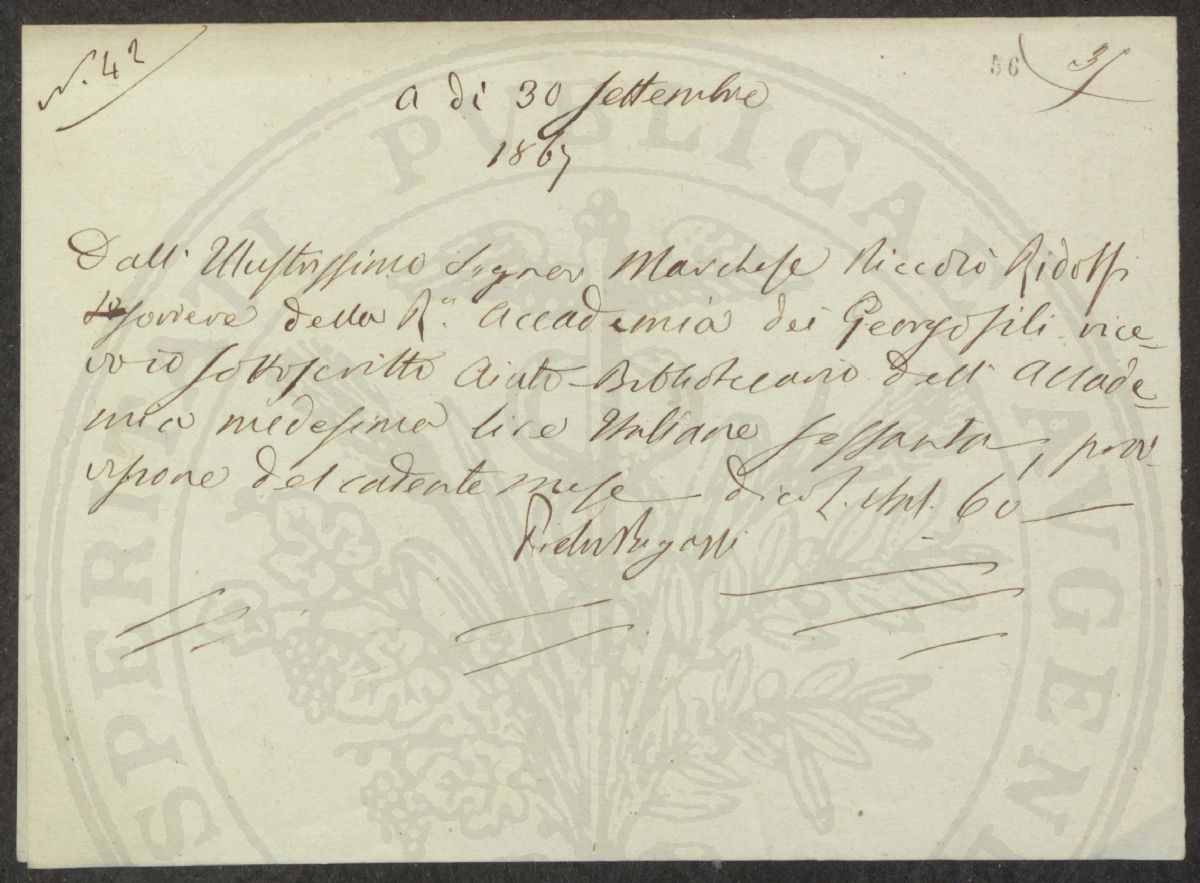 N. 42
56
a dì 30 Settembre
1867
Dall' Illustrissimo Signor Marchese Niccolò Ridolfi
Tesoriere della R.ª Accademia dei Georgofili rice-
vo io sottoscritto Aiuto-Bibliotecario dell' Accade-
mia medesima lire Italiane sessanta, prov-
visione del cadente mese dico L. Ital. 60
PROSPERITATI PUBLICAE AUGENDAE